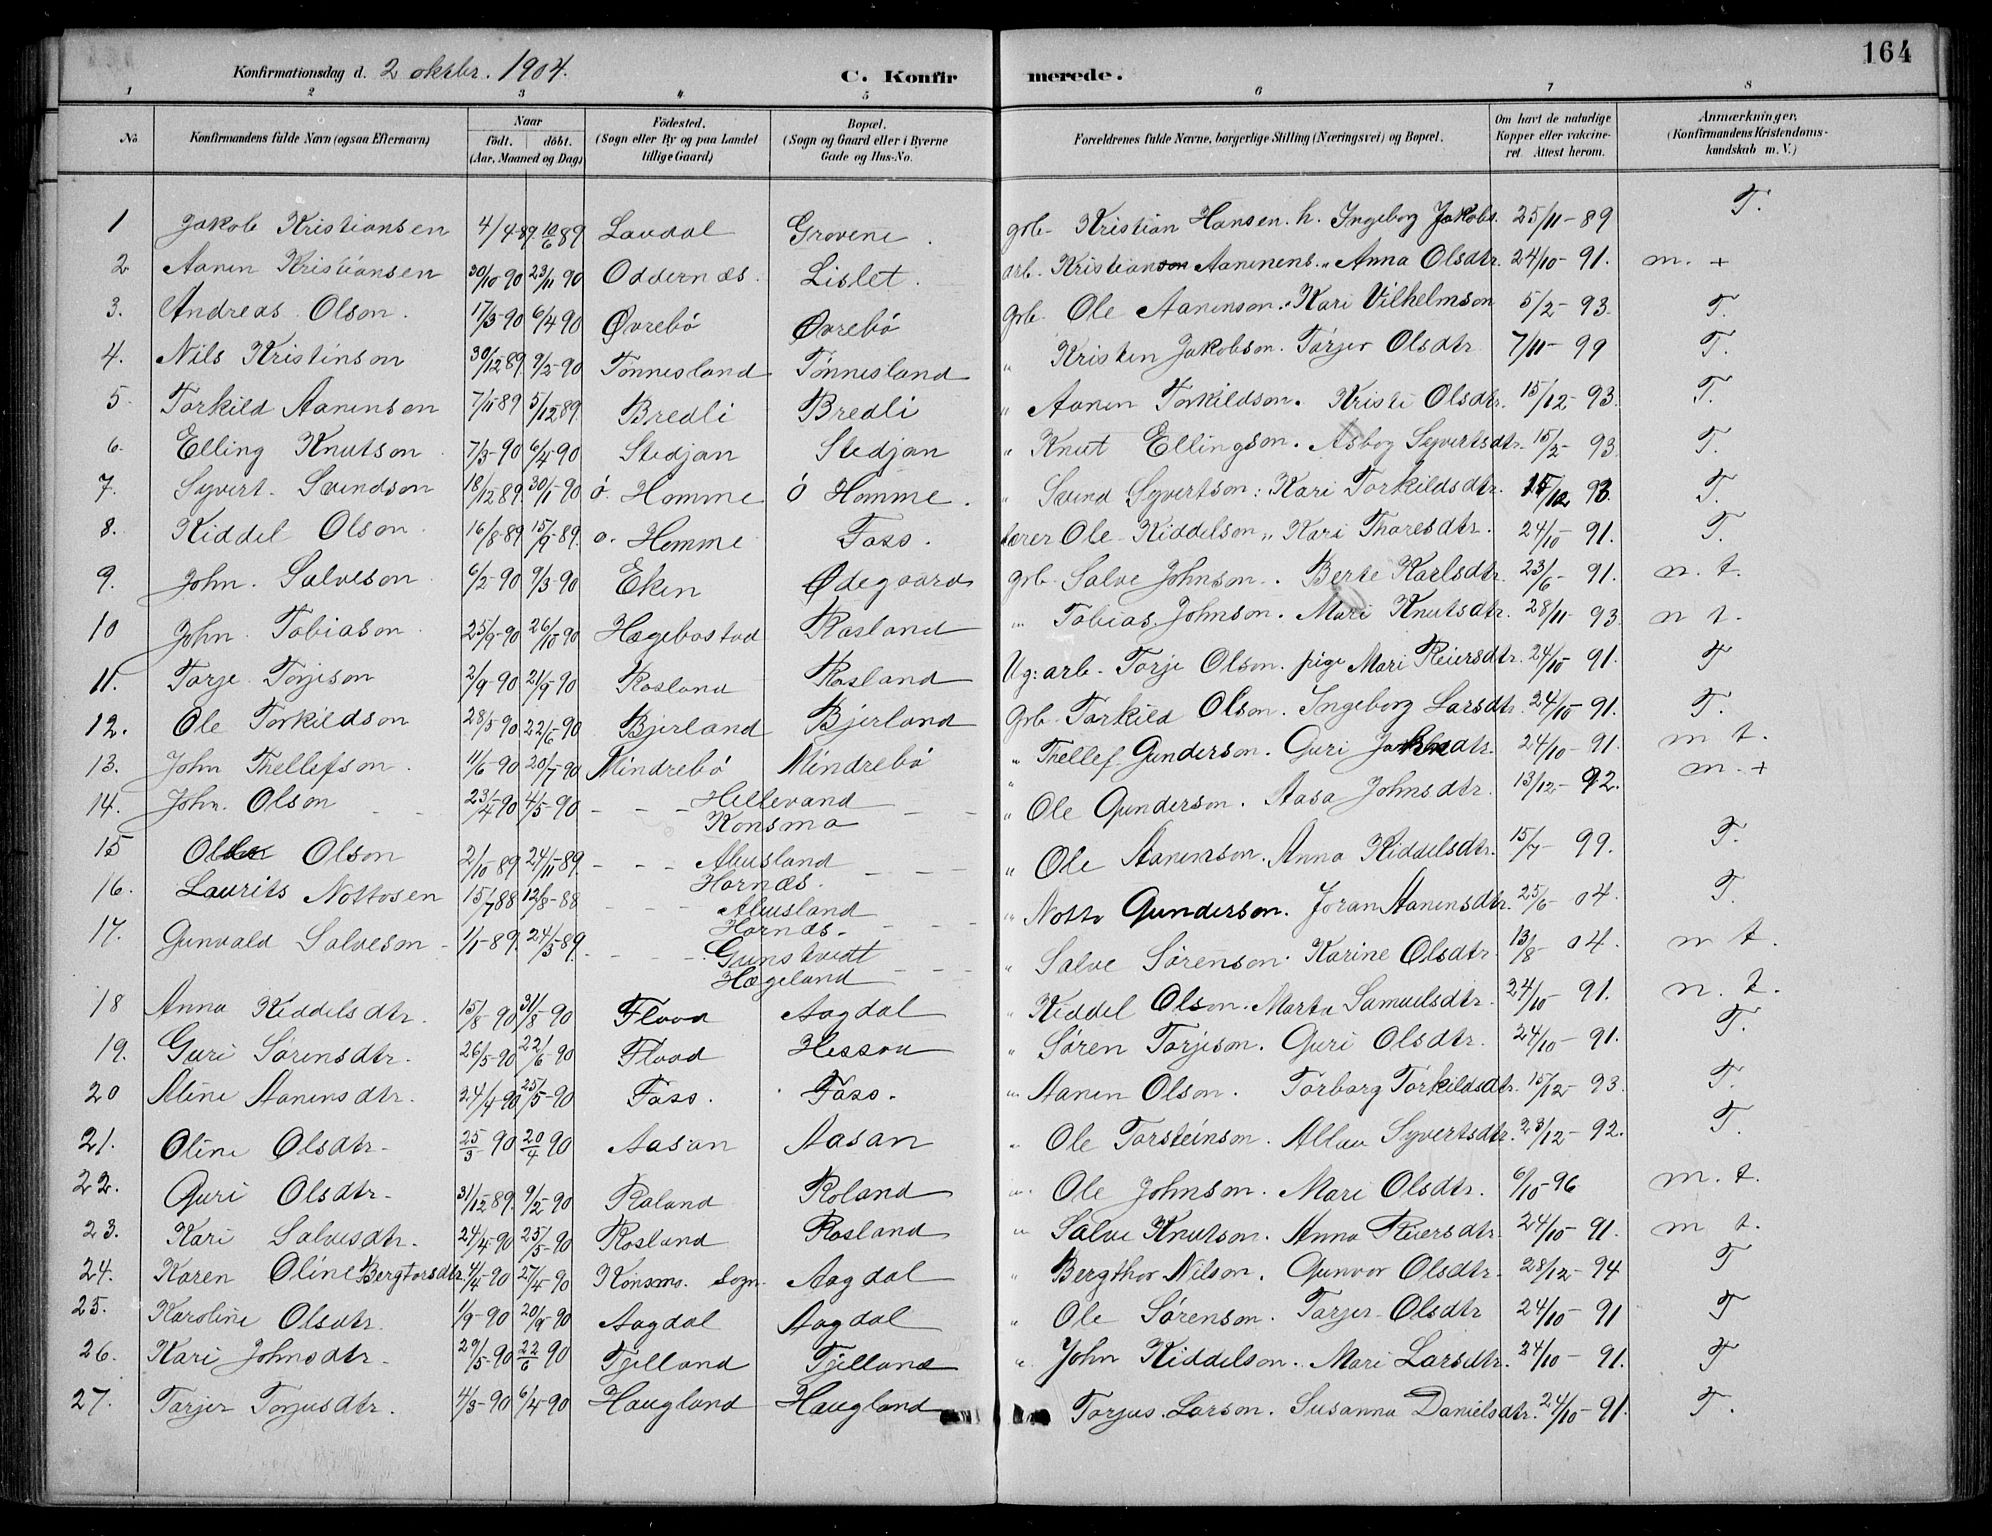 164
Konfirmationsdag d. 2 oktbr. 1904.
C. Konfirmerede.
1 2 3 4 5 6 7 8
No
Konfirmandens fulde Navn (ogsaa Efternavn)
Naar
født. døbt.
(Aar, Maaned og Dag)
Fødested.
(Sogn eller By og paa Landet
tillige Gaard)
Bopæl.
(Sogn og Gaard eller i Byerne
Gade og Hus-No.
Forældrenes fulde Navne, borgerlige Stilling (Næringsvei) og Bopæl.
Om havt de naturlige
Kopper eller vakcine-
ret. Attest herom.
Anmærkninger,
(Konfirmandens Kristendoms-
kundskab m. V.)
1 Jakob Kristiansen 4/4-89. 10/6 89 Laudal Grovene. grb. Kristian Hansen. h. Ingeborg Jakobs. 25/11-89 T.
2 Aanen Kristiansen 30/10-90 23/11 90 Oddernæs. Lislet. arb. Kristian Aanenens. " Anna Olsdtr. 24/10-91. m. +
3. Andreas Olson. 17/3-90 6/4 90 Øvrebö Øvrebö grb. Ole Aanenson. " Kari Vilhelmson 5/2-93. T.
4. Nils Kristenson 30/12 89. 9/2-90 Tönnesland Tönnesland " Kristen Jakobson. Tarjer Olsdtr. 7/11-99 T.
5. Torkild Aanenson 7/11 89 5/12 89. Bredli Bredli " Aanen Torkildson. Kristi Olsdtr. 15/12-93. T.
6. Elling Knutson 7/3-90 6/4-90 Stedjan Stedjan " Knut Ellingson. Asborg Syvertsdtr. 15/2-93 T.
7. Syvert. Svendson 18/12 89. 30/1-90 ö. Homme ö Homme. " Svend Syvertson: Kari Torkildsdtr. 15/12 93. T.
8. Kiddel Olson. 16/8-89 15/9-89. o. Homme Foss. lærer Ole Kiddelson " Kari Tharesdtr. 24/10-91. T.
9. John. Salveson 6/2-90 9/3-90 Eken Ødegaard grb. Salve Johnson. Berte Karlsdtr. 23/6-91. n. t.
10 John. Tobiason. 25/9-90 26/10-90 Hægebostad Rosland " Tobias. Johnson. Mari Knutsdtr. 28/11-93 n t.
11. Tarje Torjeson 2/9-90 21/9-90 Rosland Rosland Ug: arb. Torje Olson. pige Mari Reiersdtr. 24/10-91. T
12. Ole Torkildson 28/5 90 22/6-90 Bjerland Bjerland grb. Torkild Olson. Ingeborg Larsdtr. 24/10-91. T.
13. John Thellefson. 11/6-90 20/7-90 Mindrebö Mindrebö " Thellef Gunderson. Guri 24/10-91. m t.
14. John. Olson 23/4-90 4/5-90 Hellevand Konsmo " Ole Gunderson. Aasa Johnsdtr. 13/12-92. m. +
15 Olson 2/10-89 24/11-89. Hornæs. " Ole Aanenson. Anna Kiddelsdtr. 15/7-99. T.
16. Laurits Nottosen 15/7 88 12/8-88 Hornæs. " Notto Gunderson. Joran Aanensdtr. 25/6-04. T.
17. Gunvald Salveson 1/1-89. 24/3-89. Gunstvedt Hægeland " Salve Sörenson. Karine Olsdtr. 13/8-04. n t.
18 Anna Kiddelsdtr. 15/8-90 31/8-90 Flood Aagdal " Kiddel Olson. Marta Samuelsdtr. 24/10-91. n. t.
19. Guri Sörensdtr. 26/5-90 22/6-90 Flood Hessaa " Sören Torjeson. Guri Olsdtr. 24/10-91. T.
20 Aline Aanensdtr. 24/4-90 25/5-90 Foss. Foss. " Aanen Olson. Torborg Torkildsdtr. 15/12-93. T.
21. Oline Olsdtr. 25/3-90 20/4 90 Aasan Aasan " Ole Torsteinson. Allau Syvertsdtr. 28/12-92. T.
22. Guri Olsdtr. 31/12 89. 9/2-90 Roland Roland " Ole Johnson. Mari Olsdtr. 6/10-96 m. t.
23. Kari Salvesdtr. 24/4-90 25/5-90 Rosland Rosland " Salve Knutson. Anna Reiersdtr. 24/10-91. m t.
24. Karen Oline Bergtorsdtr. 4/4-90 27/4-90 Konsmo. Sogn. Aagdal " Bergthor Nilson. Gunvor Olsdtr. 28/12-94 T
25. Karoline Olsdtr. 1/9-90 20/9-90 Aagdal Aagdal " Ole Sörenson. Tarjer Olsdtr 24/10-91 T
26. Kari Johnsdtr. 29/5-90 22/6 90 Tjelland Tjelland " John Kiddelson. Mari Larsdtr. 24/10-91. T
27. Tarjer Torjusdtr. 4/3-90 6/4-90 Haugland Haugland Torjus. Larson. Susanna Danielsdtr. 24/10-91. T.